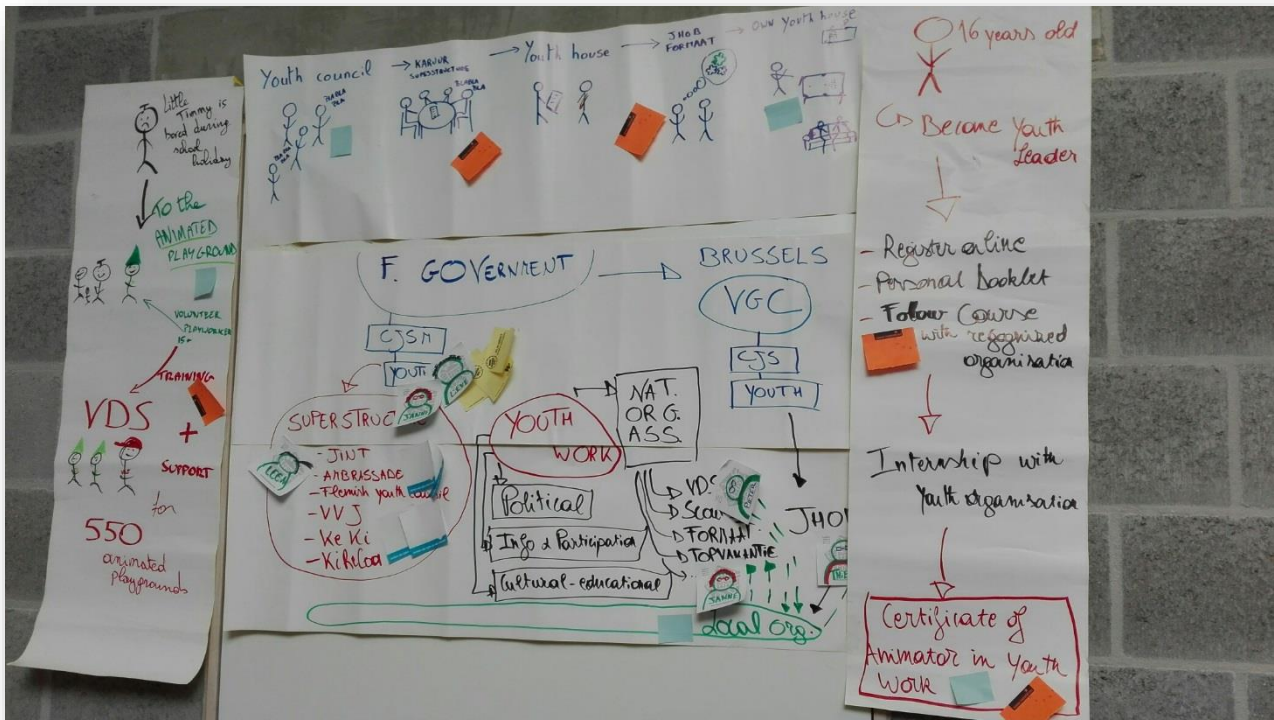 Little
Timmy is
bored during
school
holiday
To the
ANIMATED
PLAYGROUND
VOLUNTEER
PLAYWORKER
15+
TRAINING
VDS
+
SUPPORT
for
550
animated
playgrounds
Youth council
BLABLA
BLA
→ KARUUR
SUPERSTRUCTURE
BLABLA
BLA
→ Youth house
→ JHOB
FORMAAT
→ OWN youth house
F. GOVERNMENT
CJSM
YOUTH
LIEVE
JANNE
SUPERSTRUC
LEEN
- JINT
- AMBRASSADE
- Flemish youth
- VVJ
- KeKi
- KiReCoa
YOUTH
WORK
NAT.
ORG.
ASS.
Political
Info & Participation
Cultural-educational
VDS
SCOU
FORMAAT
TOPVAKANTIE
PETER
JANNE
Local org.
BRUSSELS
VGC
CJS
YOUTH
JHO
16 years old
Become Youth
Leader
- Register online
- Personal Booklet
- Follow Course
with recognized
organisation
Internship with
Youth organisation
Certificate of
Animator in Youth
Work